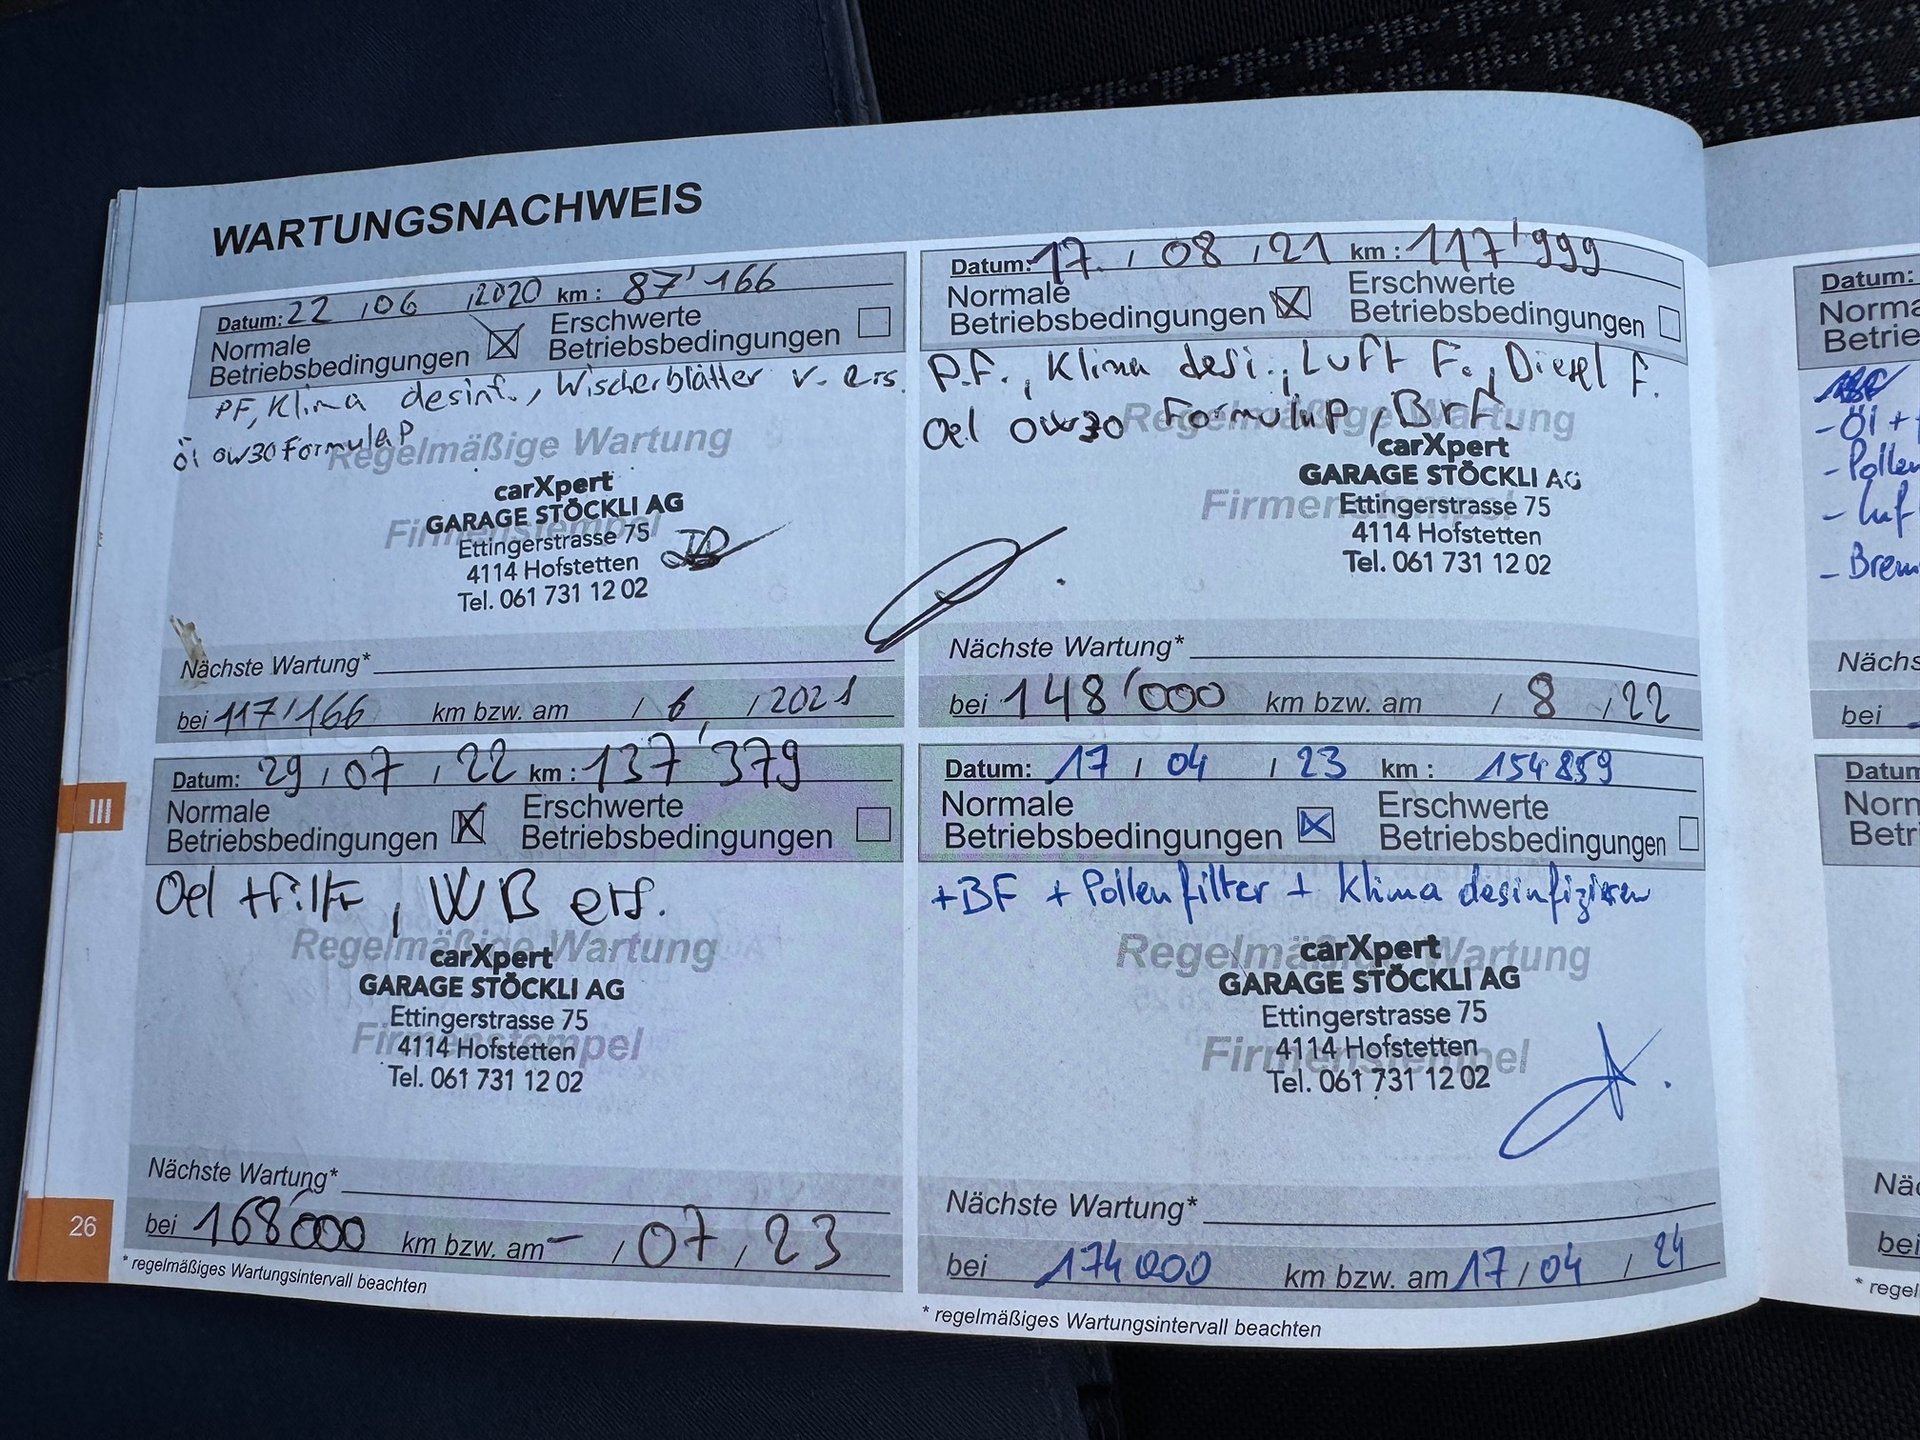 WARTUNGSNACHWEIS
Datum: 22 / 06 / 2020 km : 87'166
Normale
Betriebsbedingungen
Erschwerte
Betriebsbedingungen
PF, Klima desinf., Wischerblätter v. ers.
Öl 0w30 Formula P
Regelmäßige Wartung
carXpert
GARAGE STÖCKLI AG
Firmenstempel
Ettingerstrasse 75
4114 Hofstetten
Tel. 061 731 12 02
Nächste Wartung*
bei 117'166 km bzw. am / 6 / 2021
Datum: 17. / 08 / 21 km : 117'999
Normale
Betriebsbedingungen
Erschwerte
Betriebsbedingungen
P.F., Klima desi., Luft F., Diesel F.
Oel 0w30 Formula P, BrF.
Regelmäßige Wartung
carXpert
GARAGE STÖCKLI AG
Firmenstempel
Ettingerstrasse 75
4114 Hofstetten
Tel. 061 731 12 02
Nächste Wartung*
bei 148'000 km bzw. am / 8 / 22
Datum: 29 / 07 / 22 km : 137'379
Normale
Betriebsbedingungen
Erschwerte
Betriebsbedingungen
Oel + Filter, WB ers.
Regelmäßige Wartung
carXpert
GARAGE STÖCKLI AG
Ettingerstrasse 75
Firmenstempel
4114 Hofstetten
Tel. 061 731 12 02
Nächste Wartung*
bei 168'000 km bzw. am - / 07 / 23
* regelmäßiges Wartungsintervall beachten
Datum: 17 / 04 / 23 km : 154859
Normale
Betriebsbedingungen
Erschwerte
Betriebsbedingungen
+ BF + Pollenfilter + Klima desinfizieren
Regelmäßige Wartung
carXpert
GARAGE STÖCKLI AG
Ettingerstrasse 75
Firmenstempel
4114 Hofstetten
Tel. 061 731 12 02
Nächste Wartung*
bei 174000 km bzw. am 17 / 04 / 24
* regelmäßiges Wartungsintervall beachten
III
26
Datum:
Norma
Betrie
- Öl +
- Pollen
- Luf
- Brem
Nächs
bei
Datum
Norm
Betr
Näc
bei
* regel